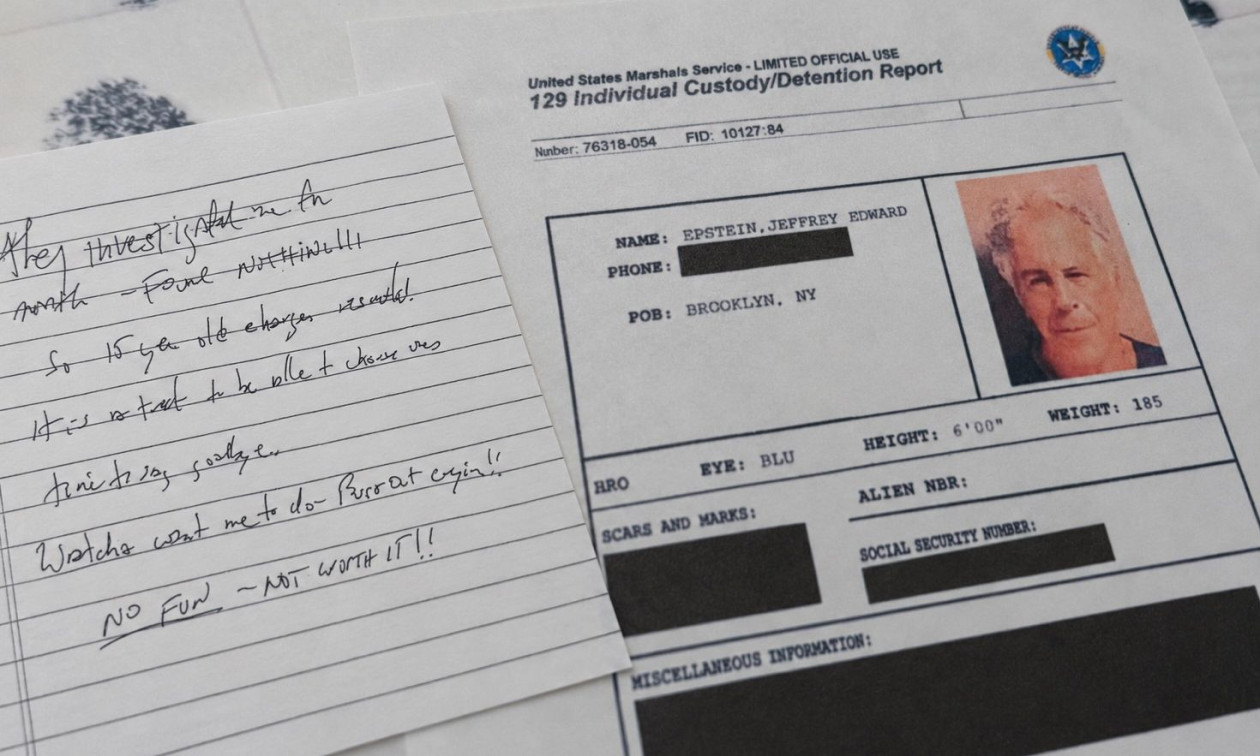 They investigated me for
month – Found NOTHING!!!
So 15 year old charges resulted.
It is a treat to be able to choose ones
time to say goodbye.
Watcha want me to do – Burst out cryin!!
NO FUN – NOT WORTH IT!!
United States Marshals Service - LIMITED OFFICIAL USE
129 Individual Custody/Detention Report
Number: 76318-054 FID: 10127:84
NAME: EPSTEIN,JEFFREY EDWARD
PHONE:
POB: BROOKLYN, NY
HRO EYE: BLU HEIGHT: 6'00" WEIGHT: 185
SCARS AND MARKS: ALIEN NBR:
SOCIAL SECURITY NUMBER:
MISCELLANEOUS INFORMATION: